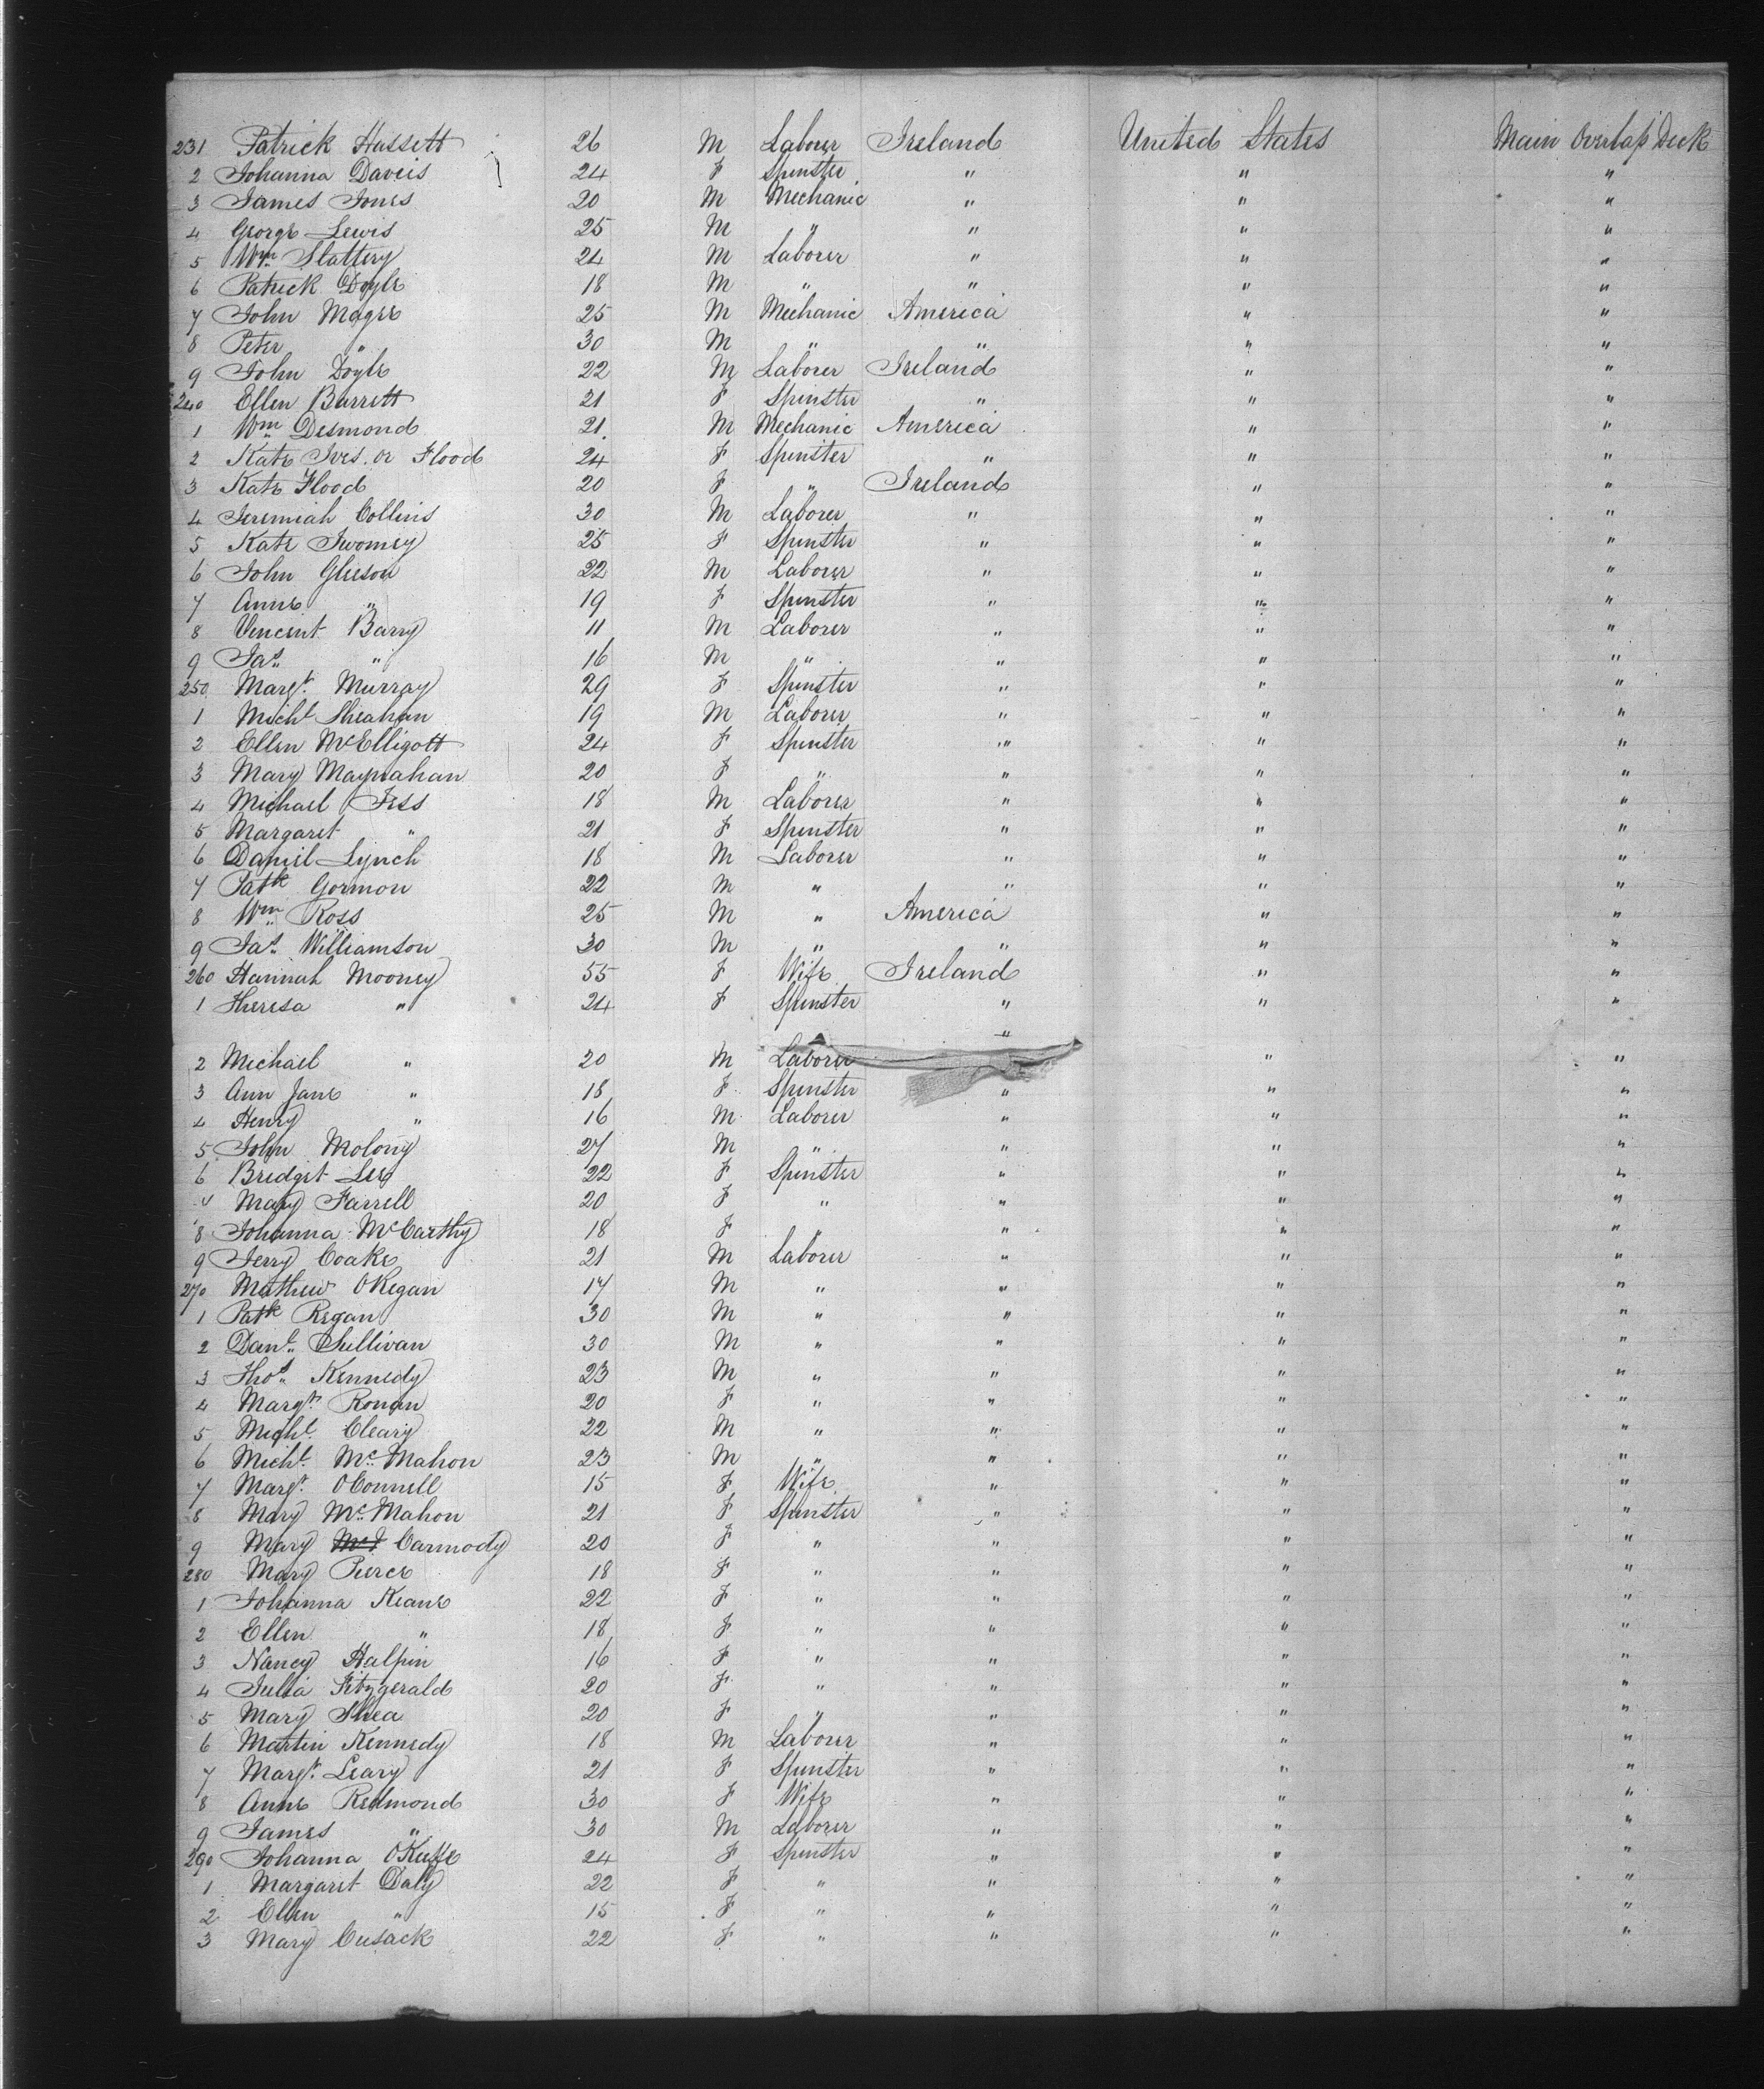 231 Patrick Hassett 26 M Laborer Ireland United States Main Overlap Deck
2 Johanna Daveis 24 F Spinster " " "
3 James Jones 20 M Mechanic " " "
4 George Lewis 25 M " " " "
5 Wm Slattery 24 M Laborer " " "
6 Patrick Doyle 18 M " " " "
7 John Magee 25 M Mechanic America " "
8 Peter " 30 M " " " "
9 John Doyle 22 M Laborer Ireland " "
240 Ellen Barrett 21 F Spinster " " "
1 Wm Desmond 21 M Mechanic America " "
2 Kate Ives or Flood 24 F Spinster " " "
3 Kate Flood 20 F " Ireland " "
4 Jeremiah Collins 30 M Laborer " " "
5 Kate Twomey 25 F Spinster " " "
6 John Gleeson 22 M Laborer " " "
7 Anne " 19 F Spinster " " "
8 Vincent Barry 11 M Laborer " " "
9 Jas " 16 M " " " "
250 Margt Murray 29 F Spinster " " "
1 Michl Sheahan 19 M Laborer " " "
2 Ellen McElligott 24 F Spinster " " "
3 Mary Maynahan 20 F " " " "
4 Michael 18 M Laborer " " "
5 Margaret " 21 F Spinster " " "
6 Daniel Lynch 18 M Laborer " " "
7 Patk Gormon 22 M " " " "
8 Wm Ross 25 M " America " "
9 Jas Williamson 30 M " " " "
260 Hannah Mooney 55 F Wife Ireland " "
1 Theresa " 24 F Spinster " " "
2 Michael " 20 M Laborer " " "
3 Ann Jane " 18 F Spinster " " "
4 Henry " 16 M Laborer " " "
5 John Molony 27 M " " " "
6 Bredget Lee 22 F Spinster " " "
7 Mary Farrell 20 F " " " "
8 Johanna McCarthy 18 F " " " "
9 Jerry Coake 21 M Laborer " " "
270 Mathew OKegan 17 M " " " "
1 Patk Regan 30 M " " " "
2 Danl Sullivan 30 M " " " "
3 Thos Kennedy 23 M " " " "
4 Margt Ronan 20 F " " " "
5 Michl Cleary 22 M " " " "
6 Michl McMahon 23 M " " " "
7 Margt OConnell 15 F Wife " " "
8 Mary McMahon 21 F Spinster " " "
9 Mary Carmody 20 F " " " "
280 Mary Pierce 18 F " " " "
1 Johanna Keane 22 F " " " "
2 Ellen " 18 F " " " "
3 Nancy Halpin 16 F " " " "
4 Julia Fitzgerald 20 F " " " "
5 Mary Shea 20 F " " " "
6 Martin Kennedy 18 M Laborer " " "
7 Margt Leary 21 F Spinster " " "
8 Anne Redmond 30 F Wife " " "
9 James " 30 M Laborer " " "
290 Johanna OKeeffe 24 F Spinster " " "
1 Margaret Daly 22 F " " " "
2 Ellen " 15 F " " " "
3 Mary Cusack 22 F " " " "